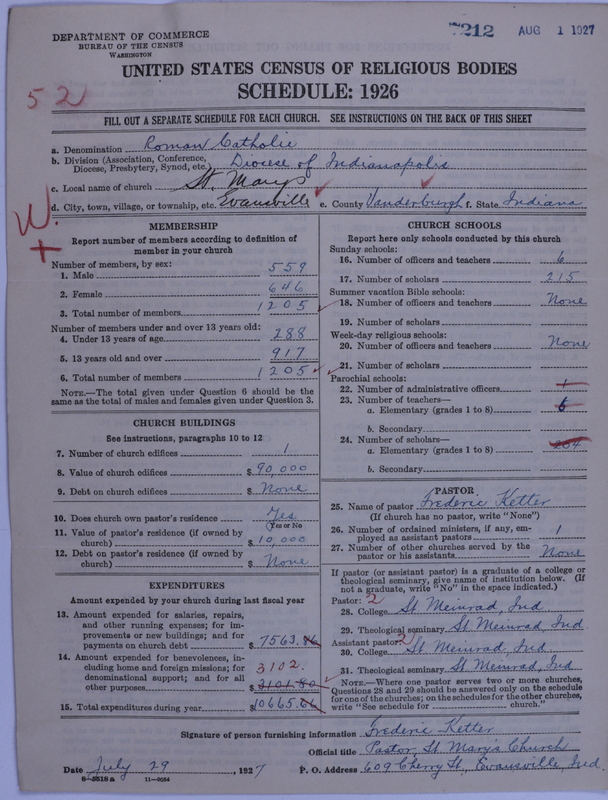 7212 AUG 1 1927
DEPARTMENT OF COMMERCE
BUREAU OF THE CENSUS
WASHINGTON
UNITED STATES CENSUS OF RELIGIOUS BODIES
SCHEDULE: 1926
52
FILL OUT A SEPARATE SCHEDULE FOR EACH CHURCH. SEE INSTRUCTIONS ON THE BACK OF THIS SHEET
a. Denomination Roman Catholic
b. Division (Association, Conference, Diocese, Presbytery, Synod, etc.) Diocese of Indianapolis
c. Local name of church St. Mary's
d. City, town, village, or township, etc. Evansville e. County Vanderburgh f. State Indiana
W.
MEMBERSHIP
Report number of members according to definition of
member in your church
Number of members, by sex:
1. Male 559
2. Female 646
3. Total number of members 1205
Number of members under and over 13 years old:
4. Under 13 years of age 288
5. 13 years old and over 917
6. Total number of members 1205
NOTE.—The total given under Question 6 should be
same as the total of males and females given under Question 3.
CHURCH BUILDINGS
See instructions, paragraphs 10 to 12
7. Number of church edifices 1
8. Value of church edifices $ 90,000
9. Debt on church edifices $ None
10. Does church own pastor's residence Yes
(Yes or No
11. Value of pastor's residence (if owned by
church) $ 10,000
12. Debt on pastor's residence (if owned by
church) $ None
EXPENDITURES
Amount expended by your church during last fiscal year
13. Amount expended for salaries, repairs,
and other running expenses; for im-
provements or new buildings; and for
payments on church debt $ 7563.86
14. Amount expended for benevolences, in-
cluding home and foreign missions; for
denominational support; and for all
other purposes 3102. $ 3101.80
15. Total expenditures during year $ 10665.66
CHURCH SCHOOLS
Report here only schools conducted by this church
Sunday schools:
16. Number of officers and teachers 6
17. Number of scholars 215
Summer vacation Bible schools:
18. Number of officers and teachers None
19. Number of scholars
Week-day religious schools:
20. Number of officers and teachers None
21. Number of scholars
Parochial schools:
22. Number of administrative officers 1
23. Number of teachers—
a. Elementary (grades 1 to 8) 6
b. Secondary
24. Number of scholars—
a. Elementary (grades 1 to 8) 204
b. Secondary
PASTOR
25. Name of pastor Frederic Ketter
(If church has no pastor, write "None")
26. Number of ordained ministers, if any, em-
ployed as assistant pastors 1
27. Number of other churches served by the
pastor or his assistants None
If pastor (or assistant pastor) is a graduate of a college or
theological seminary, give name of institution below. (If
not a graduate, write "No" in the space indicated.)
Pastor: 2
28. College St Meinrad, Ind
29. Theological seminary St. Meinrad, Ind
Assistant pastor: 2
30. College St Meinrad, Ind
31. Theological seminary St Meinrad, Ind
NOTE.—Where one pastor serves two or more churches,
Questions 28 and 29 should be answered only on the schedule
for one of the churches; on the schedules for the other churches,
write "See schedule for church."
Signature of person furnishing information Frederic Ketter
Official title Pastor, St Mary's Church
Date July 29, 1927 P. O. Address 609 Cherry St, Evansville, Ind.
11—9054